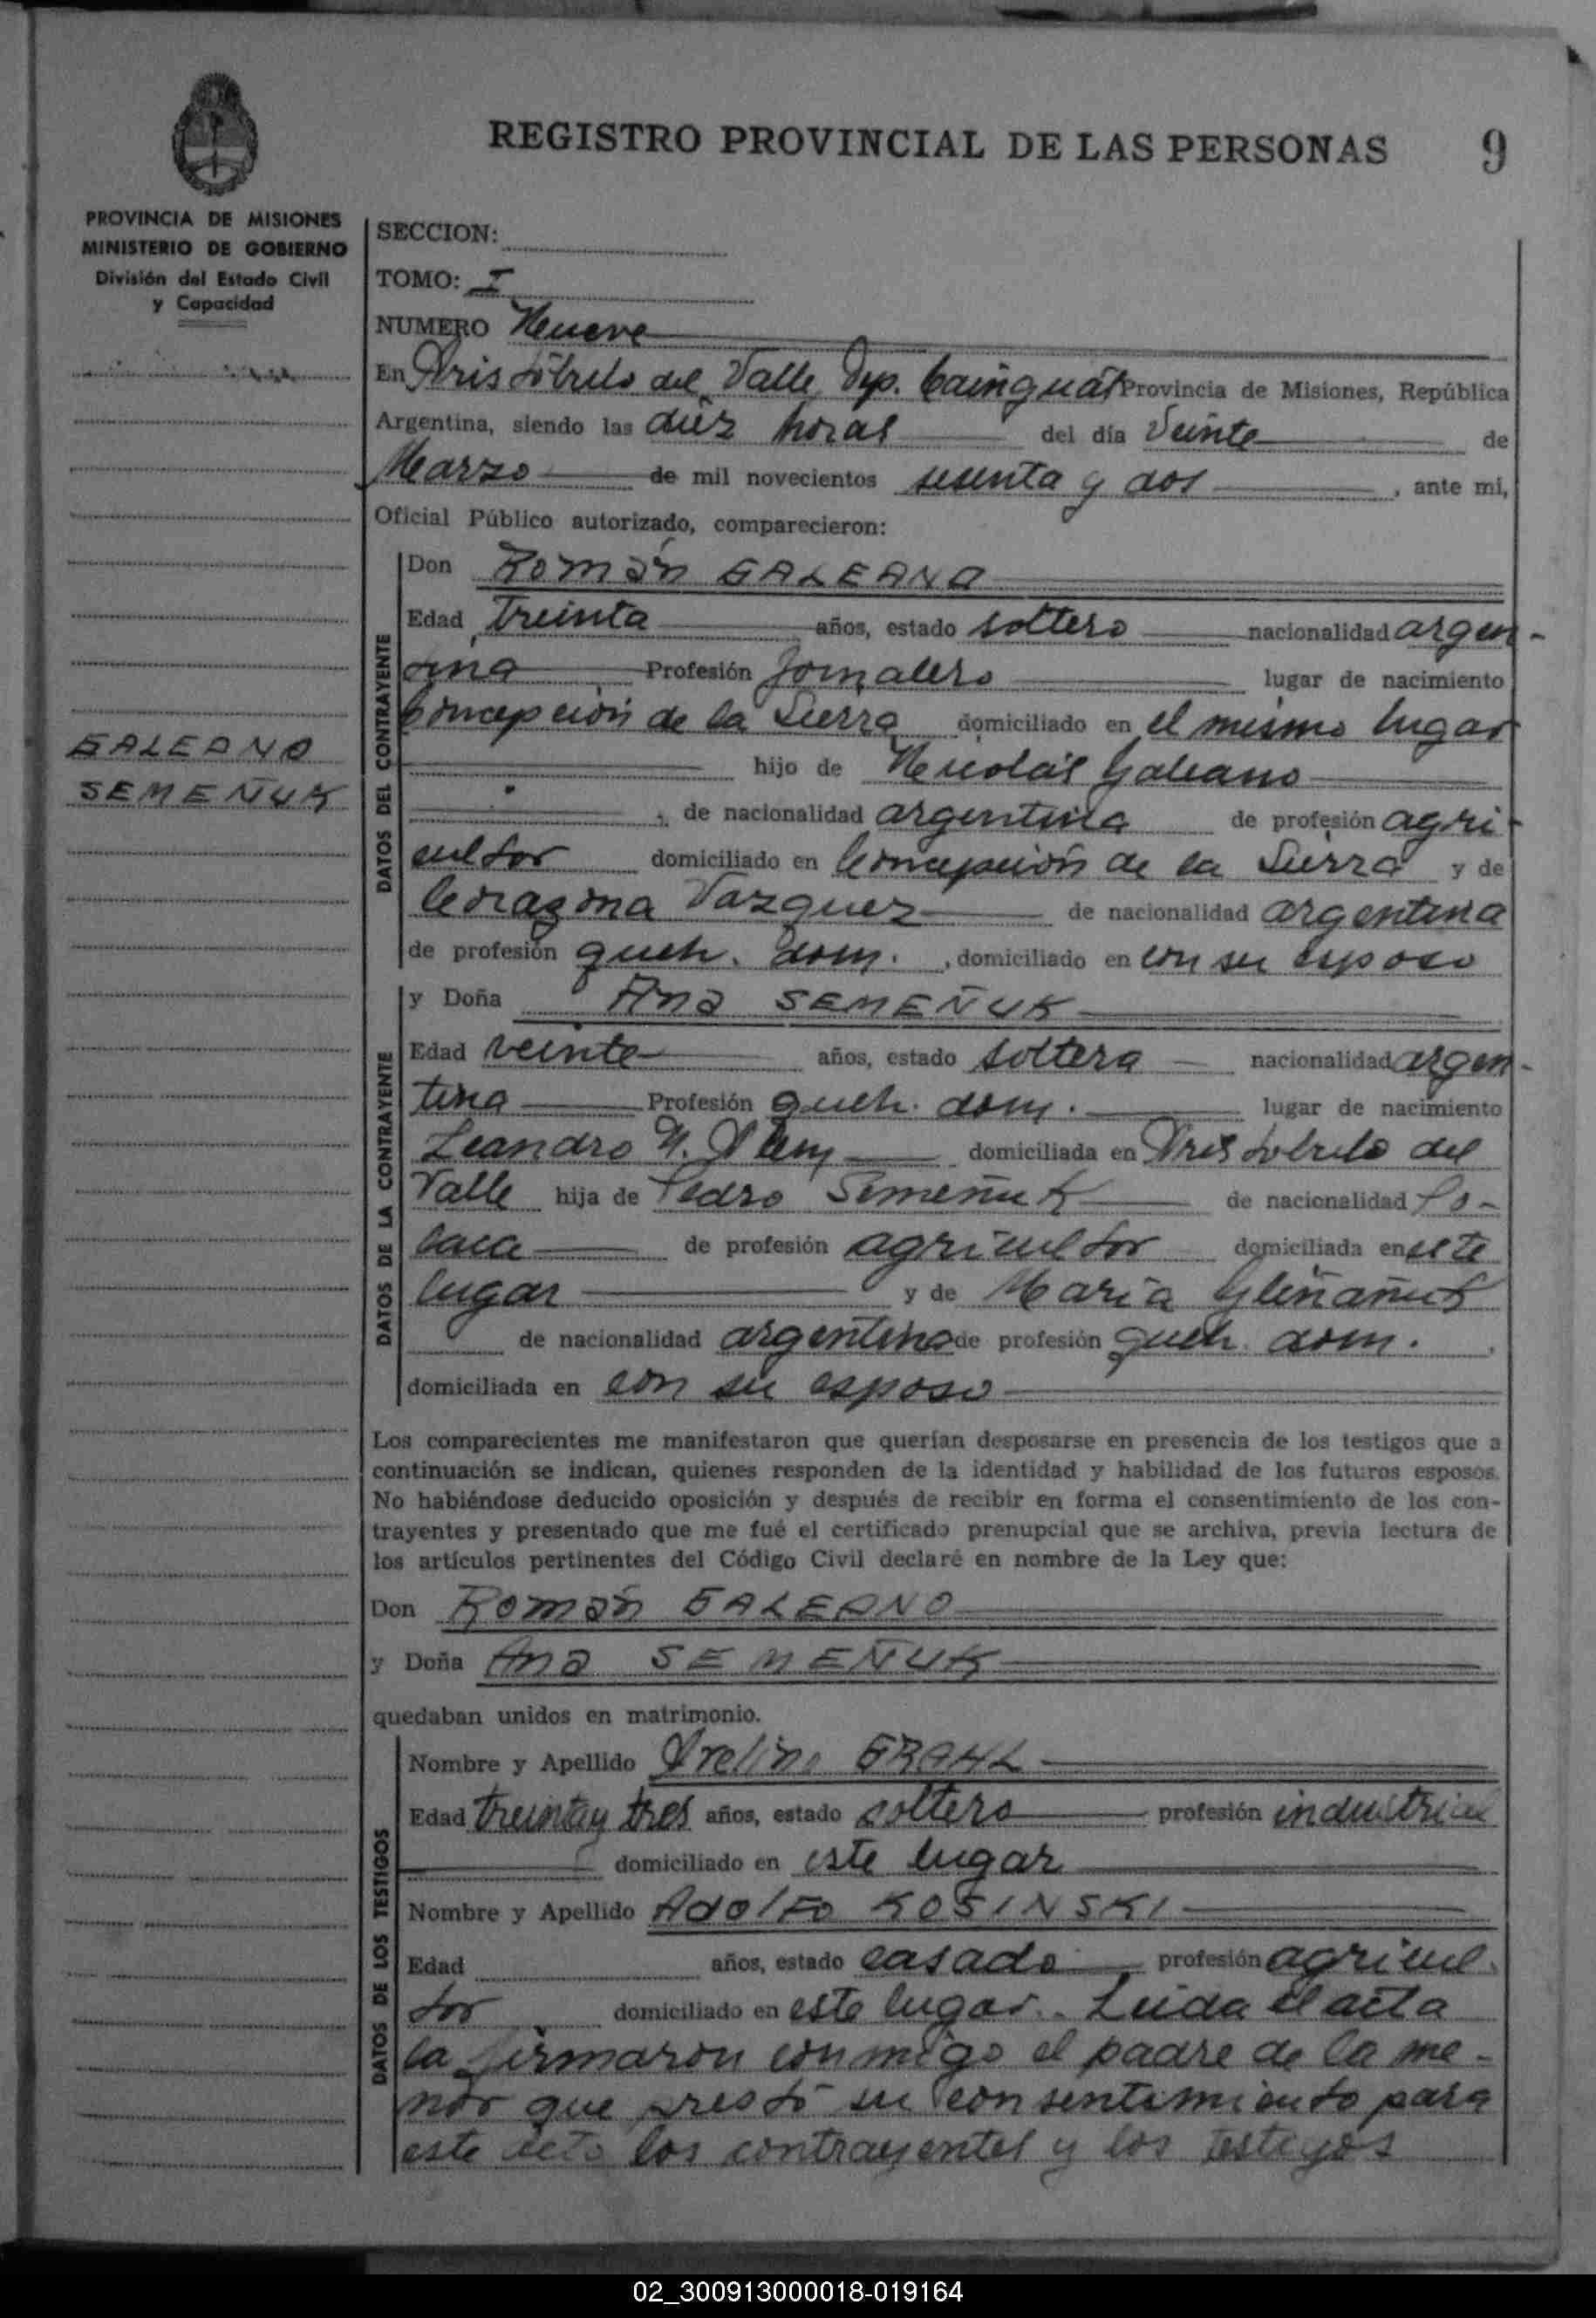 REGISTRO PROVINCIAL DE LAS PERSONAS 9
PROVINCIA DE MISIONES
MINISTERIO DE GOBIERNO
División del Estado Civil
y Capacidad
GALEANO
SEMEÑUK
SECCION:
TOMO: I
NUMERO Nueve
En Aristóbulo del Valle, Dep. Cainguás Provincia de Misiones, República
Argentina, siendo las diez horas del día Veinte de
Marzo de mil novecientos sesenta y dos, ante mi,
Oficial Público autorizado, comparecieron:
DATOS DEL CONTRAYENTE
Don Román GALEANO
Edad Treinta años, estado soltero nacionalidad argen-
tina Profesión Jornalero lugar de nacimiento
Concepción de la Sierra domiciliado en el mismo lugar
hijo de Nicolás Galeano
, de nacionalidad argentina de profesión agri-
cultor domiciliado en Concepción de la Sierra y de
Corazona Vazquez de nacionalidad argentina
de profesión queh. dom. , domiciliado en con su esposo
DATOS DE LA CONTRAYENTE
y Doña Ana SEMEÑUK
Edad veinte años, estado soltera nacionalidad argen-
tina Profesión queh. dom. lugar de nacimiento
Leandro N. Alem domiciliada en Aristobulo del
Valle hija de Pedro Semeñuk de nacionalidad Po-
laca de profesión agricultor domiciliada en este
lugar y de María
de nacionalidad argentina de profesión queh. dom. ,
domiciliada en con su esposo
Los comparecientes me manifestaron que querían desposarse en presencia de los testigos que a
continuación se indican, quienes responden de la identidad y habilidad de los futuros esposos.
No habiéndose deducido oposición y después de recibir en forma el consentimiento de los con-
trayentes y presentado que me fué el certificado prenupcial que se archiva, previa lectura de
los artículos pertinentes del Código Civil declaré en nombre de la Ley que:
Don Román GALEANO
y Doña Ana SEMEÑUK
quedaban unidos en matrimonio.
DATOS DE LOS TESTIGOS
Nombre y Apellido GRAHL
Edad treinta y tres años, estado soltero profesión industrial
domiciliado en este lugar
Nombre y Apellido Adolfo KOSINSKI
Edad años, estado casado profesión agricul-
tor domiciliado en este lugar.- Leida el acta
la firmaron conmigo el padre de la me-
nor que prestó su consentimiento para
este acto los contrayentes y los testigos
02_300913000018-019164